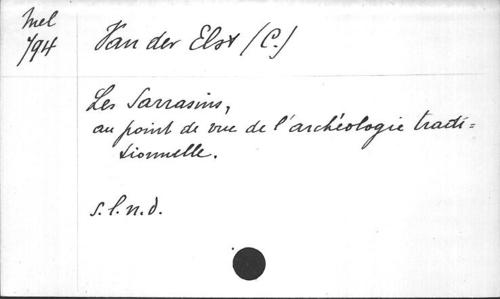 Mel
794
Van der Elst (C.)
Les Sarrasins,
au point de vue de l'archéologie tradi=
tionnelle.
s.l.n.d.